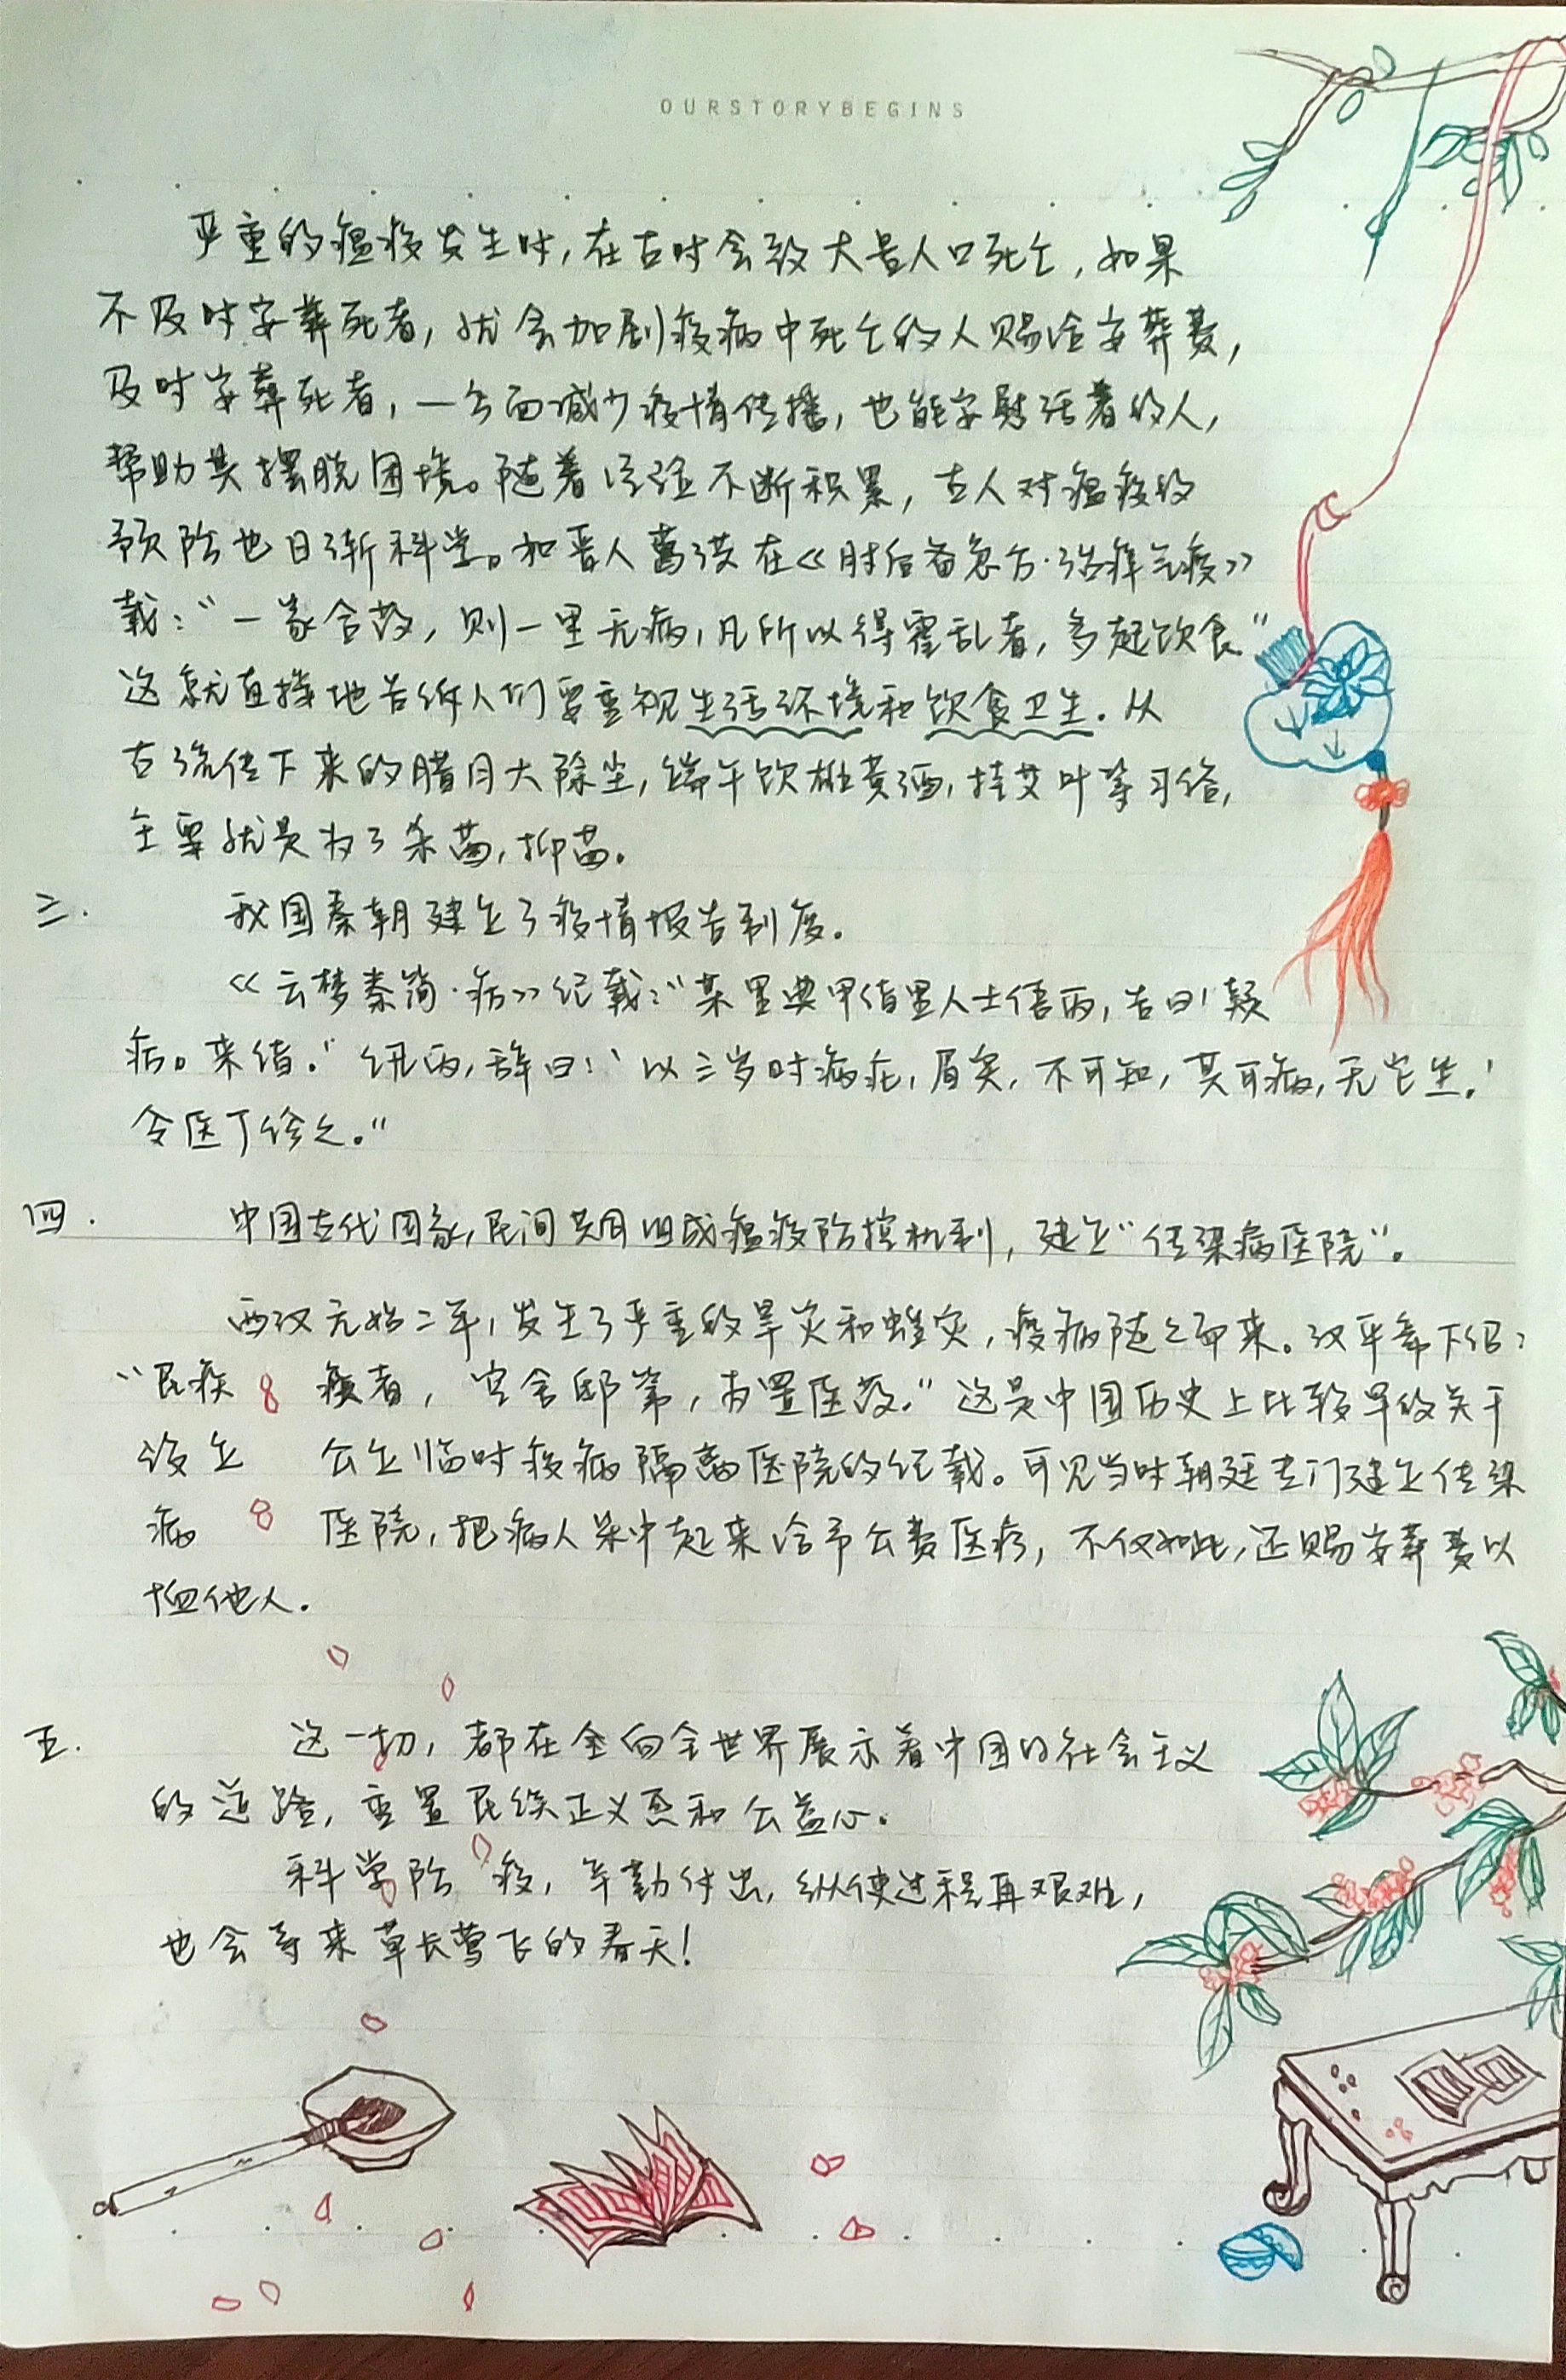 OURSTORYBEGINS
严重的瘟疫发生时,在古时会致大量人口死亡,如果
不及时安葬死者,就会加剧疫病中死亡的人赐给安葬费,
及时安葬死者,一方面减少疫情传播,也能安慰活着的人,
帮助其摆脱困境。随着经验不断积累,古人对瘟疫的
预防也日渐科学。如晋人葛洪在《肘后备急方·治瘴气疫》
载:“一家合药,则一里无病,凡所以得霍乱者,多起饮食”
这就直接地告诉人们要重视生活环境和饮食卫生.从
古流传下来的腊月大除尘,端午饮雄黄酒,挂艾叶等习俗,
主要就是为了杀菌,抑菌.
三. 我国秦朝建立了疫情报告制度.
《云梦秦简·疠》纪载:“某里典甲信里人士伍丙,告曰'疑
疠。来信.'讯丙,辞曰:'以三岁时病疕,眉突,不可知,其可病,无它坐.'
令医丁诊之.”
四. 中国古代国家,民间共同组成瘟疫防控机制,建立“传染病医院”.
西汉元始二年,发生了严重的旱灾和蝗灾,疫病随之而来.汉平帝下诏:
“民疾 疫者,空舍邸第,为置医药.”这是中国历史上比较早的关于
设立 公立临时疫病隔离医院的纪载。可见当时朝廷专门建立传染
病 医院,把病人集中起来给予公费医疗,不仅如此,还赐安葬费以
恤他人.
五. 这一切,都在全向全世界展示着中国的社会主义
的道路,重置民族正义感和公益心.
科学防 疫,辛勤付出,纵使过程再艰难,
也会等来草长莺飞的春天!